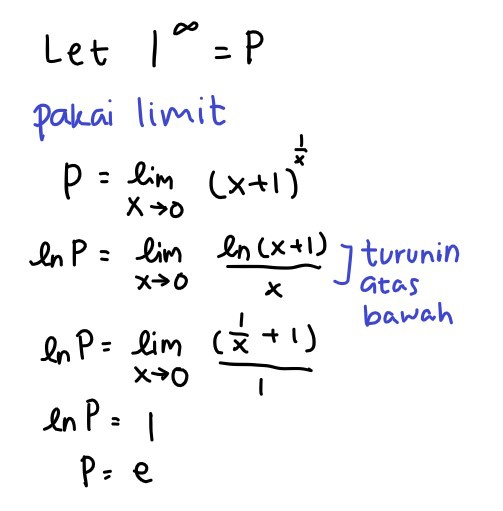 Let 1^∞ = P
pakai limit
P = lim x→0 (x+1)^(1/x)
ln P = lim x→0 ln(x+1)/x ] turunin atas bawah
ln P = lim x→0 (1/x + 1)/1
ln P = 1
P = e